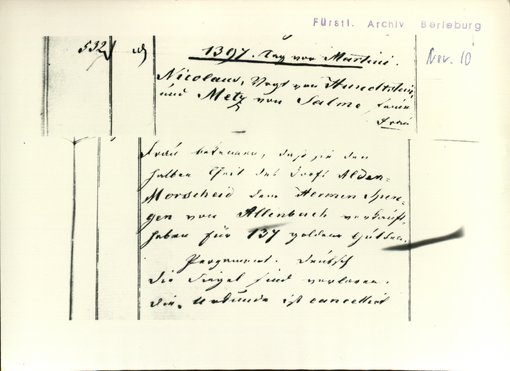 Fürstl. Archiv Berleburg
532
1397. Tag vor Martini.
Nov. 10
Nicolaus, Vogt von Hunoltstein,
und Metz von Salme seine
Frau
Frau bekennen, daß sie den
halben Theil des Dorfs Alden-
Morscheid dem Herman
von Allenbach verkauft
haben für 137 goldene Gulden.
Pergament. Deutsch
die Siegel sind verloren.
die Urkunde ist cancellirt